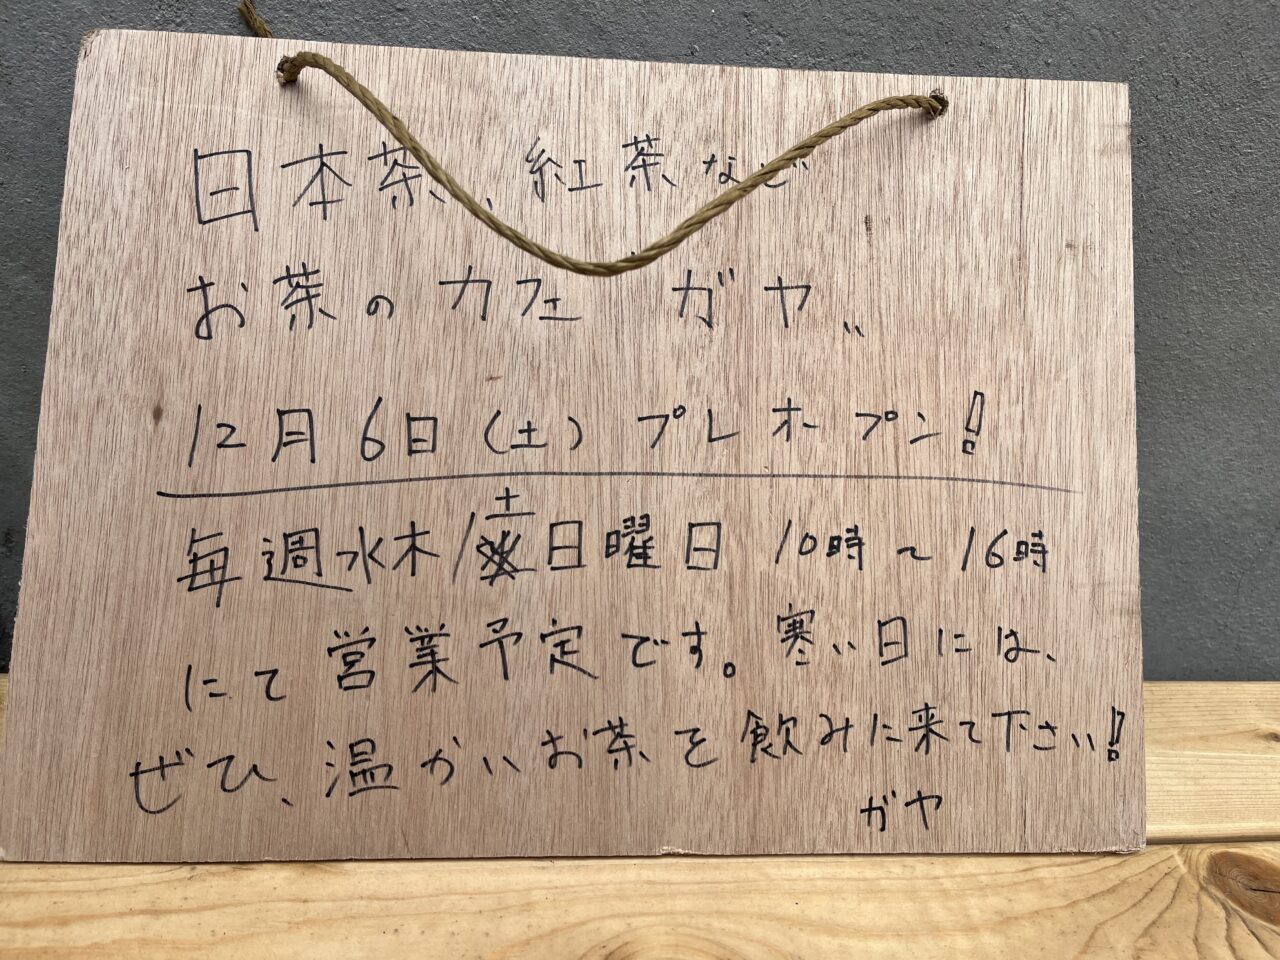 日本茶、紅茶など
お茶のカフェ "ガヤ"
12月6日(土) プレオープン!
毎週水木/土日曜日 10時~16時
にて営業予定です。寒い日には、
ぜひ、温かいお茶を飲みに来て下さい!
ガヤ